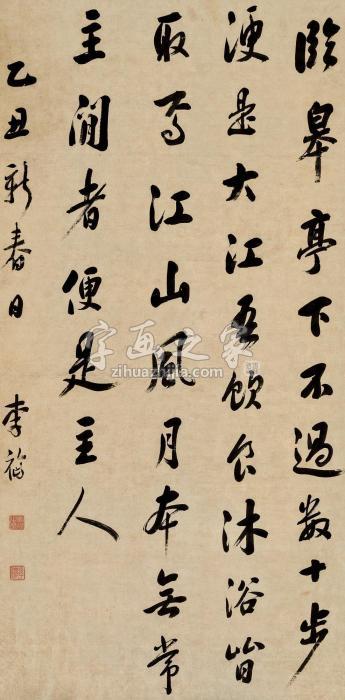 臨皋亭下不過數十步
便是大江吾飲食沐浴皆
取焉江山風月本無常
主閒者便是主人
乙丑新春日 李
字画之家
zihuazhijia.com